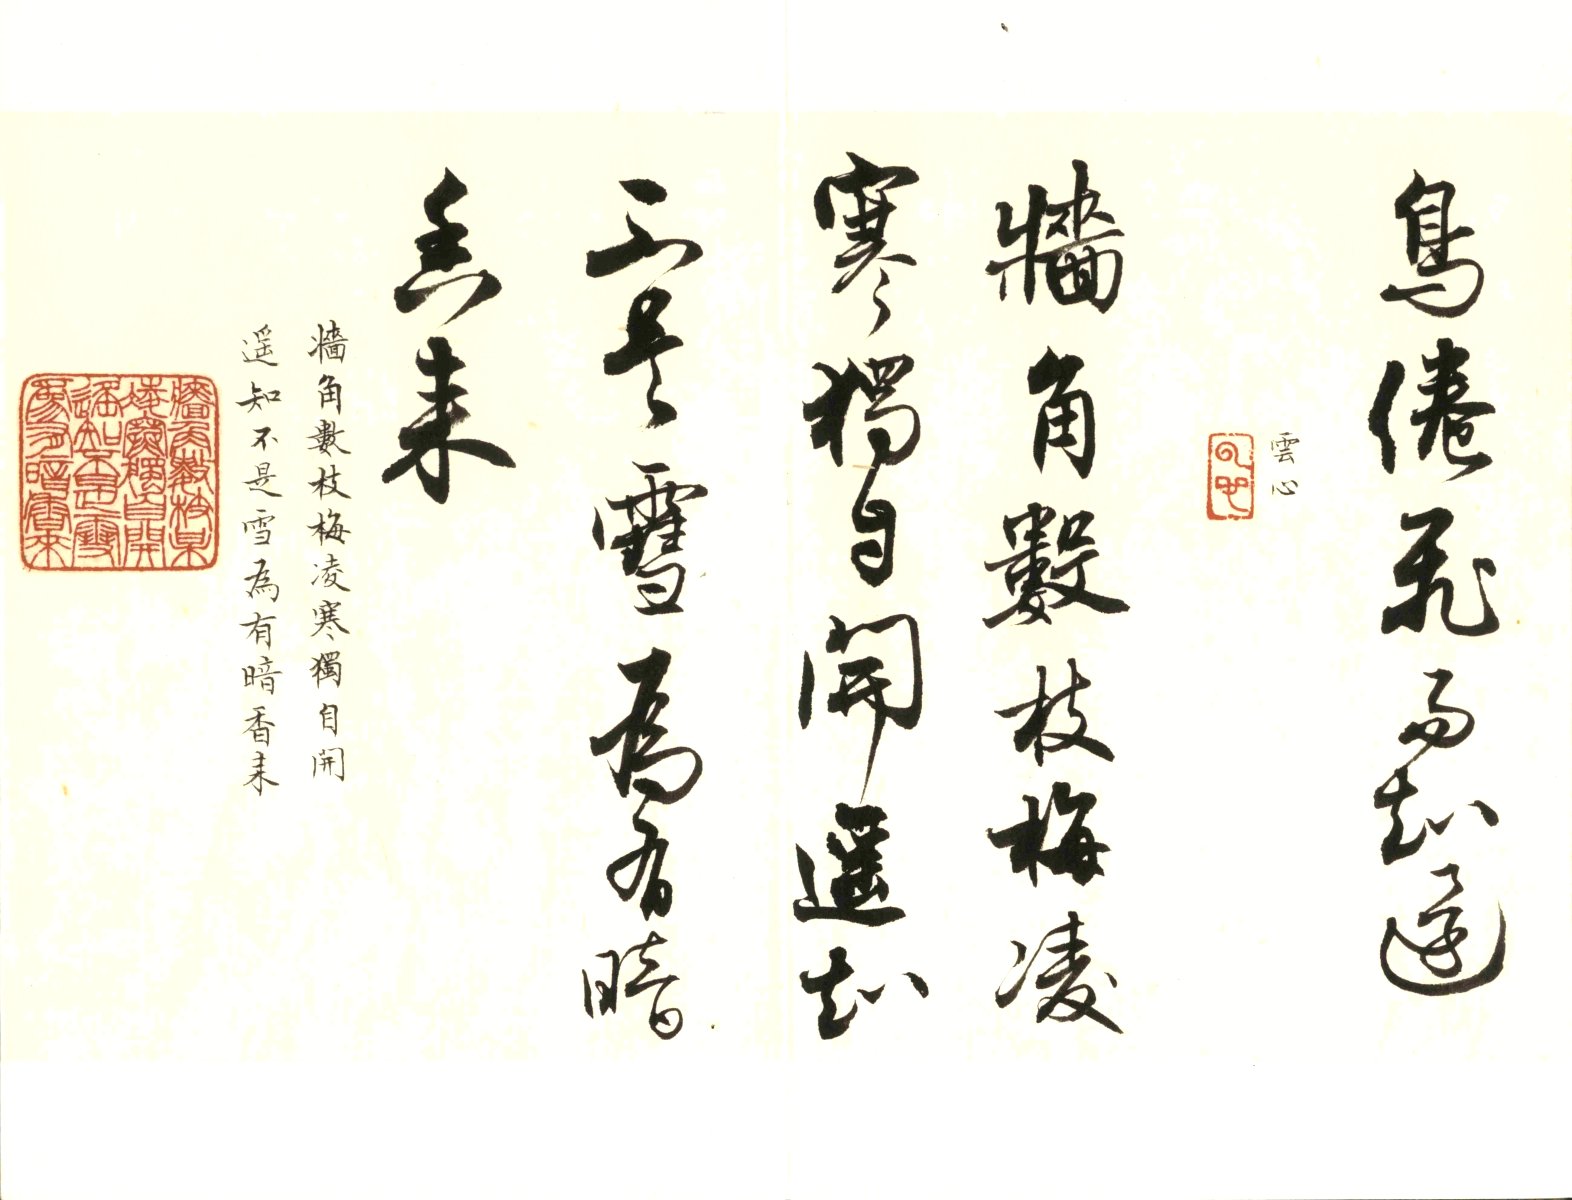 鳥倦飛而知還
雲心
云心
牆角數枝梅凌
寒獨自開遥知
不是雪為有暗
香来
牆角數枝梅凌寒獨自開
遥知不是雪為有暗香来
牆角數枝某
凌寒獨自開
遥知不是雪
為有暗香來